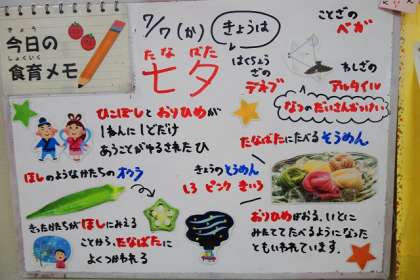 きょう
今日の
しょくいく
食育メモ
7/7(か)
きょうは
たなばた
七夕
ことざの
ベガ
はくちょう
ざの
デネブ
わしざの
アルタイル
なつのだいさんかっけい
ひこぼしとおりひめが
1ねんに1どだけ
あうことがゆるされたひ
ほしのようなかたちのオクラ
きったかたちがほしにみえる
ことから、たなばたに
よくつかわれる
たなばたにたべるそうめん
きょうのそうめん
しろ ピンク きいろ
おりひめがおる、いとに
みたててたべるようになった
ともいわれています。